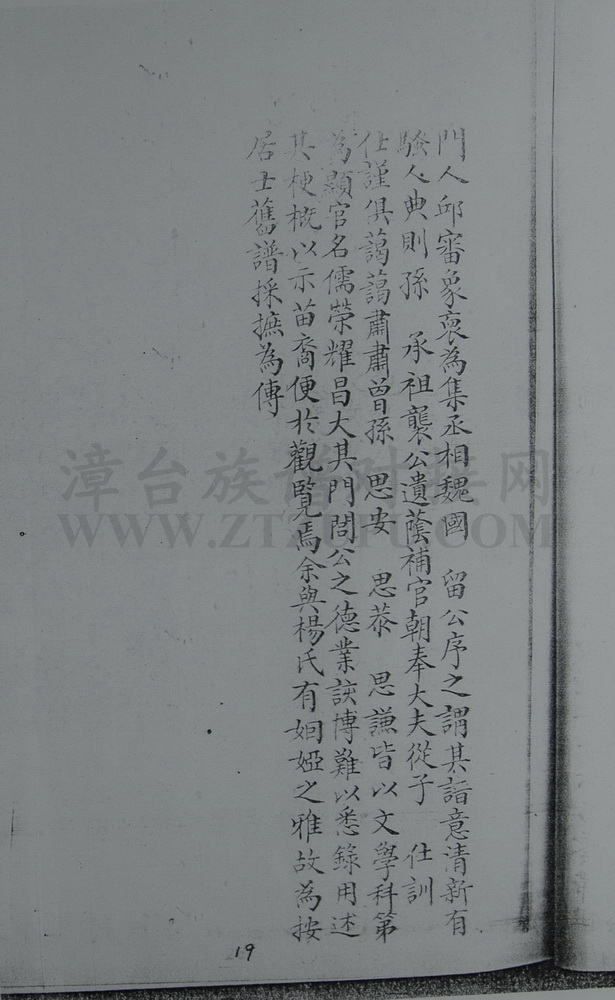 門人邱審象裒為集丞相魏國 留公序之謂其詣意清新有
騷人典則孫 承祖襲公遺蔭補官朝奉大夫從子 仕訓
仕謹俱藹藹肅肅曾孫 思安 思恭 思謙皆以文學科第
為顯官名儒榮耀昌大其門閭公之德業詼博難以悉錄用述
其梗概以示苗裔便於觀覽焉余與楊氏有姻婭之雅故為按
居士舊譜採摭為傳
漳台族谱对接网
WWW.ZTZPFU.COM
19